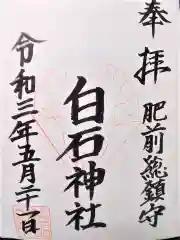 奉拝
肥前總鎮守
白石神社
令和三年五月二十一日